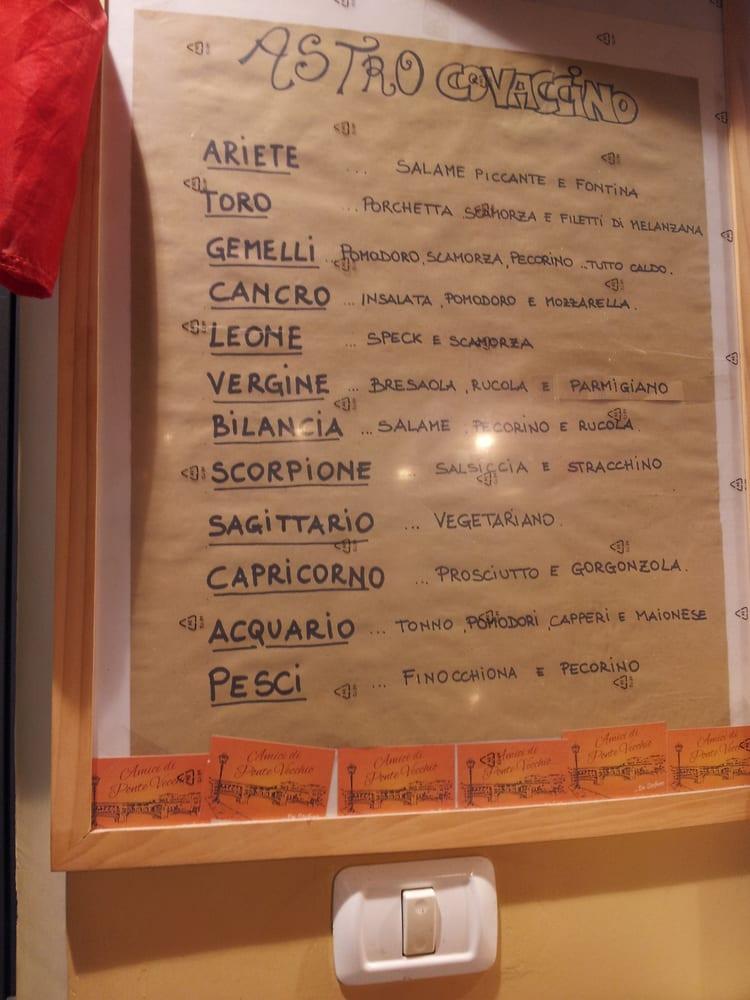 ASTRO COVACCINO
ARIETE ... SALAME PICCANTE E FONTINA
TORO ... PORCHETTA SCAMORZA E FILETTI DI MELANZANA
GEMELLI ... POMODORO, SCAMORZA, PECORINO ... TUTTO CALDO.
CANCRO ... INSALATA, POMODORO E MOZZARELLA.
LEONE ... SPECK E SCAMORZA
VERGINE ... BRESAOLA, RUCOLA E PARMIGIANO
BILANCIA ... SALAME, PECORINO E RUCOLA.
SCORPIONE .. SALSICCIA E STRACCHINO
SAGITTARIO ... VEGETARIANO.
CAPRICORNO ... PROSCIUTTO E GORGONZOLA.
ACQUARIO ... TONNO, POMODORI, CAPPERI E MAIONESE
PESCI ... FINOCCHIONA E PECORINO
Amici di Ponte Vecchio
Amici di Ponte Vecchio
Amici di Ponte Vecchio
Amici di Ponte Vecchio
Amici di Ponte Vecchio
Amici di Ponte Vecchio